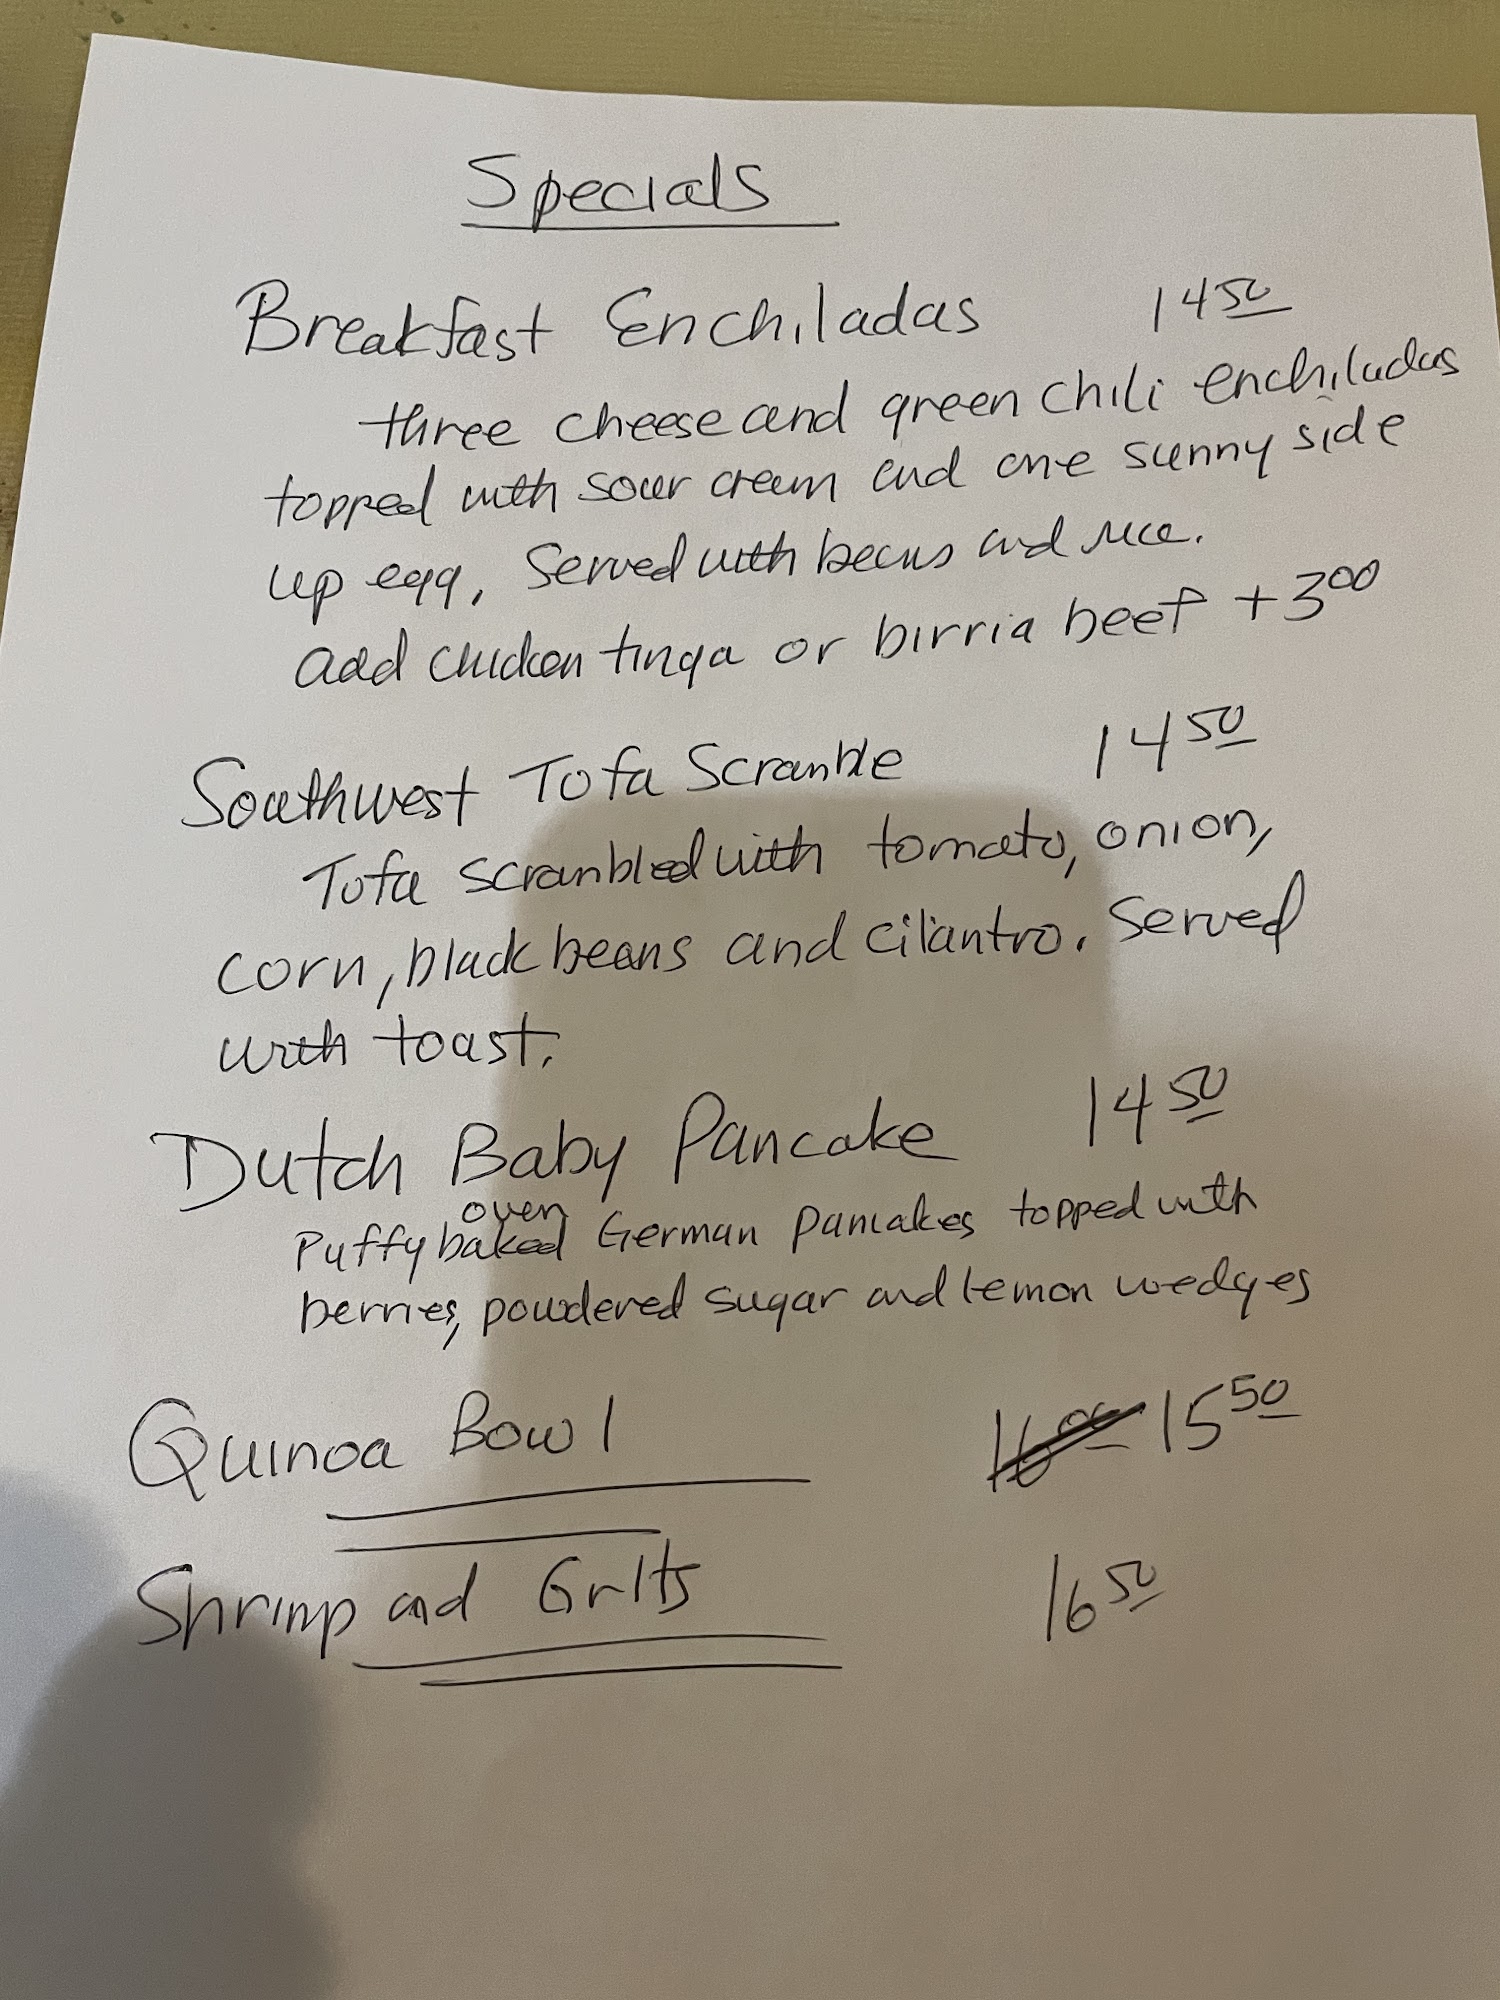 Specials
Breakfast Enchiladas 14 50
three cheese and green chili enchiladas
topped with sour cream and one sunny side
up egg, Served with beans and rice.
add chicken tinga or birria beef +3 00
Southwest Tofu Scramble 14 50
Tofu scrambled with tomato, onion,
corn, black beans and cilantro. Served
with toast.
Dutch Baby Pancake 14 50
oven
Puffy baked German pancakes topped with
berries, powdered sugar and lemon wedges
Quinoa Bowl 16 00 15 50
Shrimp and Grits 16 50